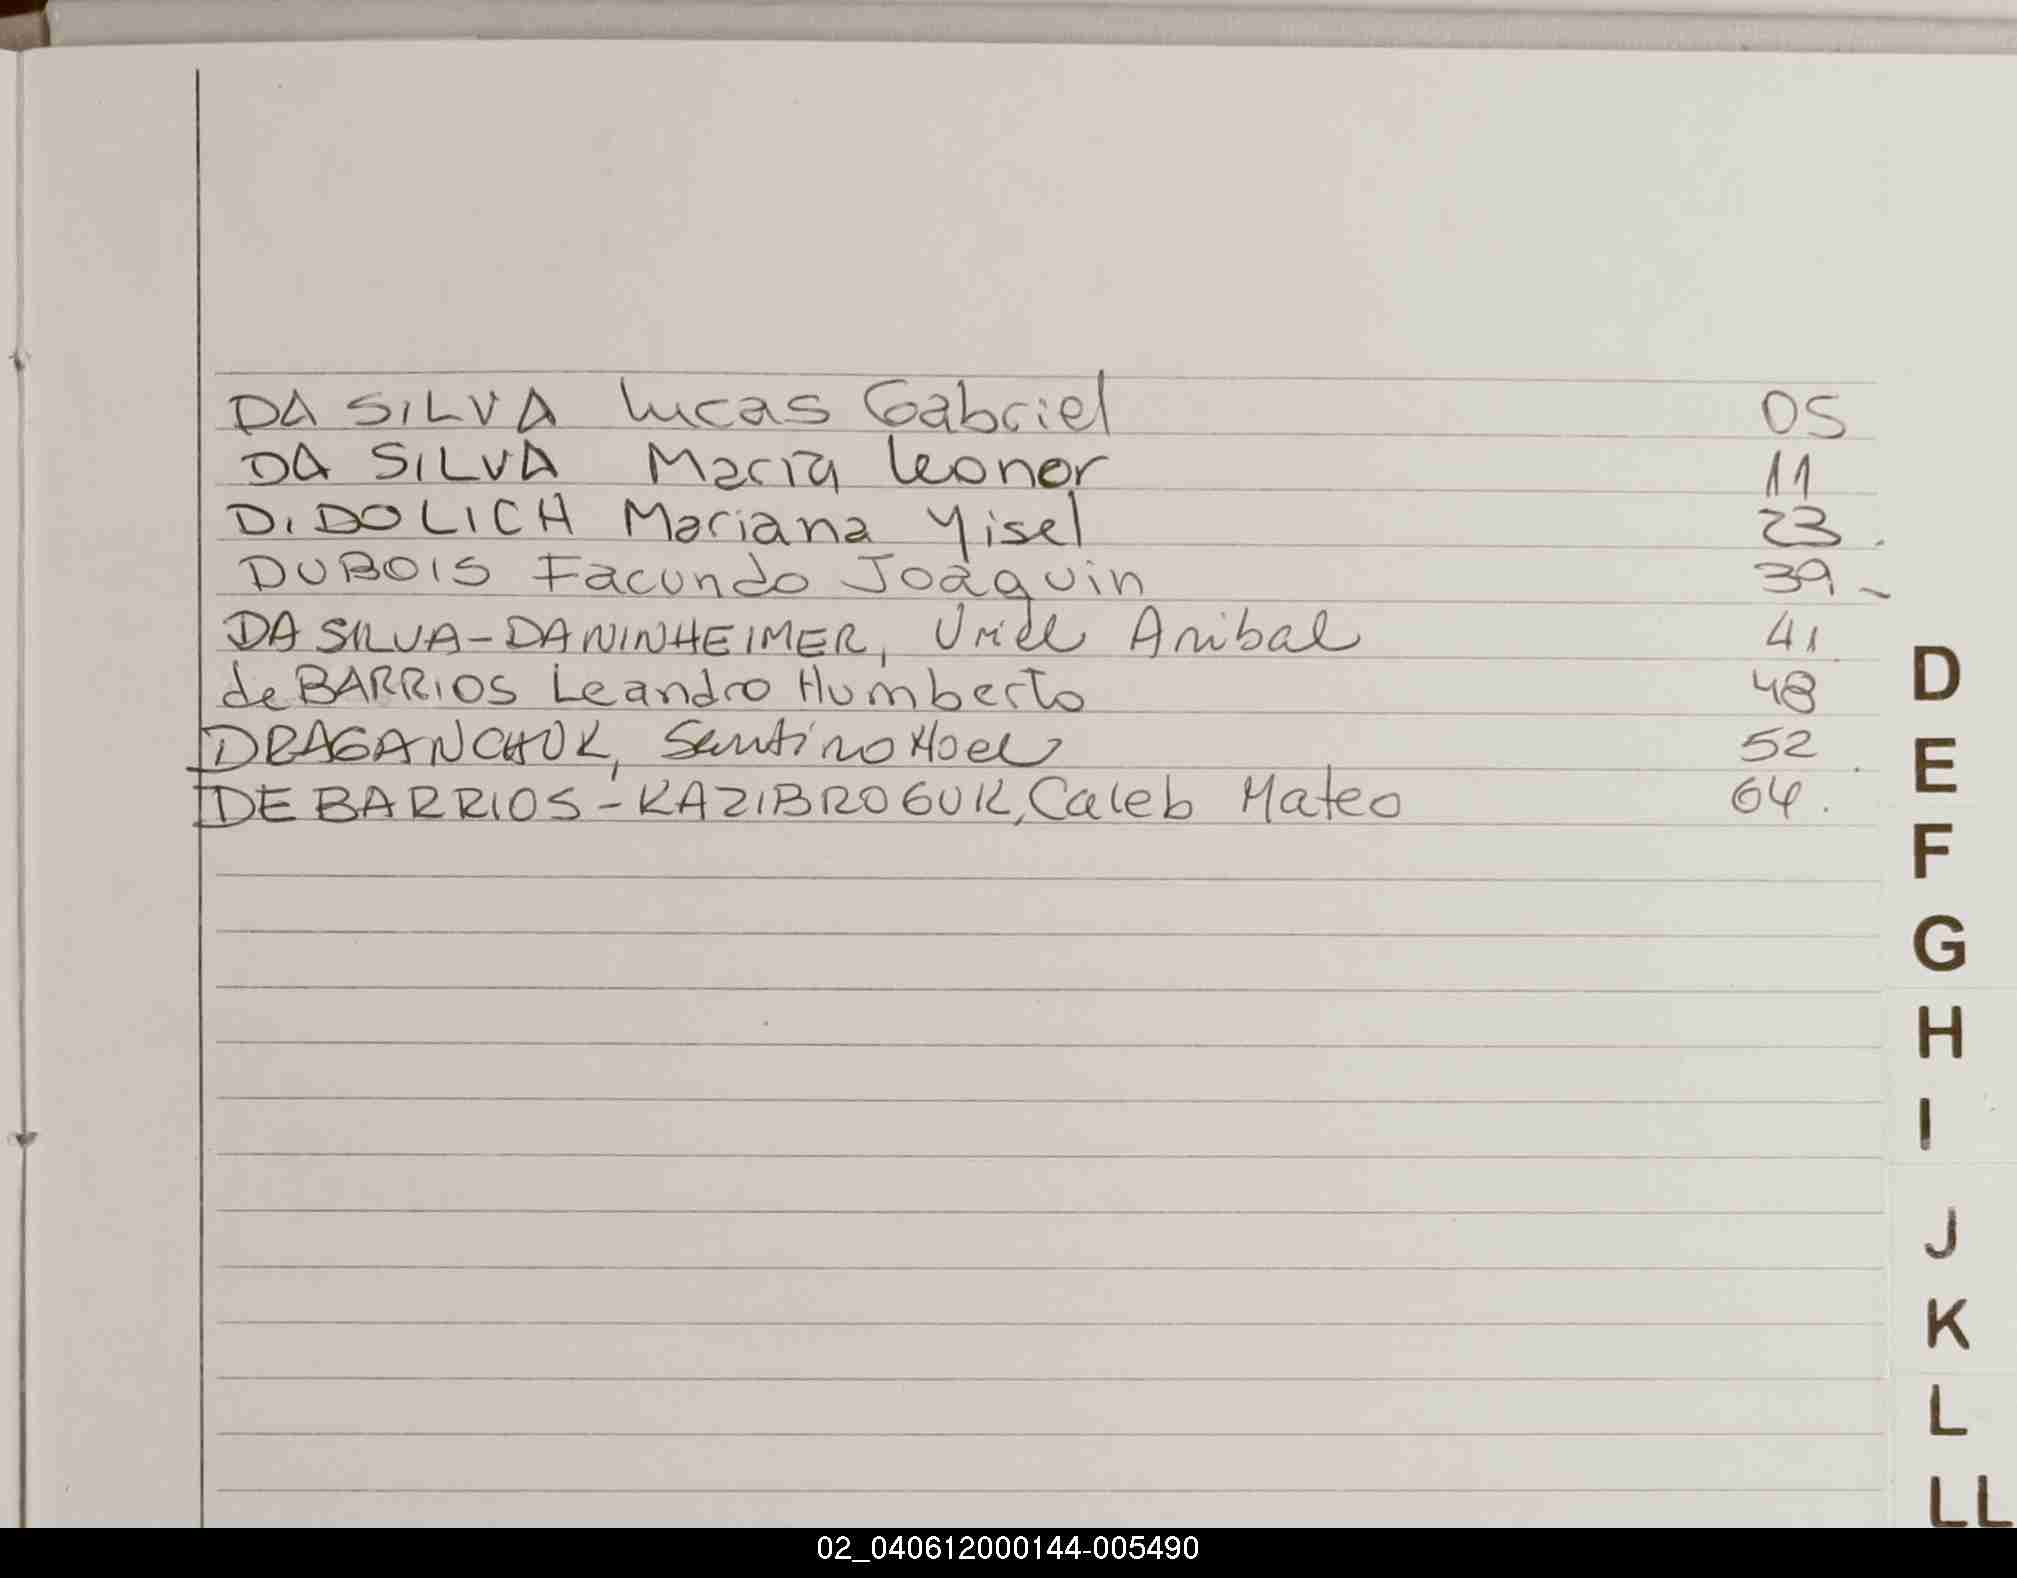 DA SILVA Lucas Gabriel 05
DA SILVA Maria Leonor 11
DIDOLICH Mariana Yisel 23.
DUBOIS Facundo Joaquin 39-
DA SILVA-DANINHEIMER, Uriel Anibal 41
de BARRIOS Leandro Humberto 48
DRAGANCHUK, Santino Noel 52.
DE BARRIOS-KAZIBROGUK, Caleb Mateo 64.
D
E
F
G
H
I
J
K
L
LL
02_040612000144-005490